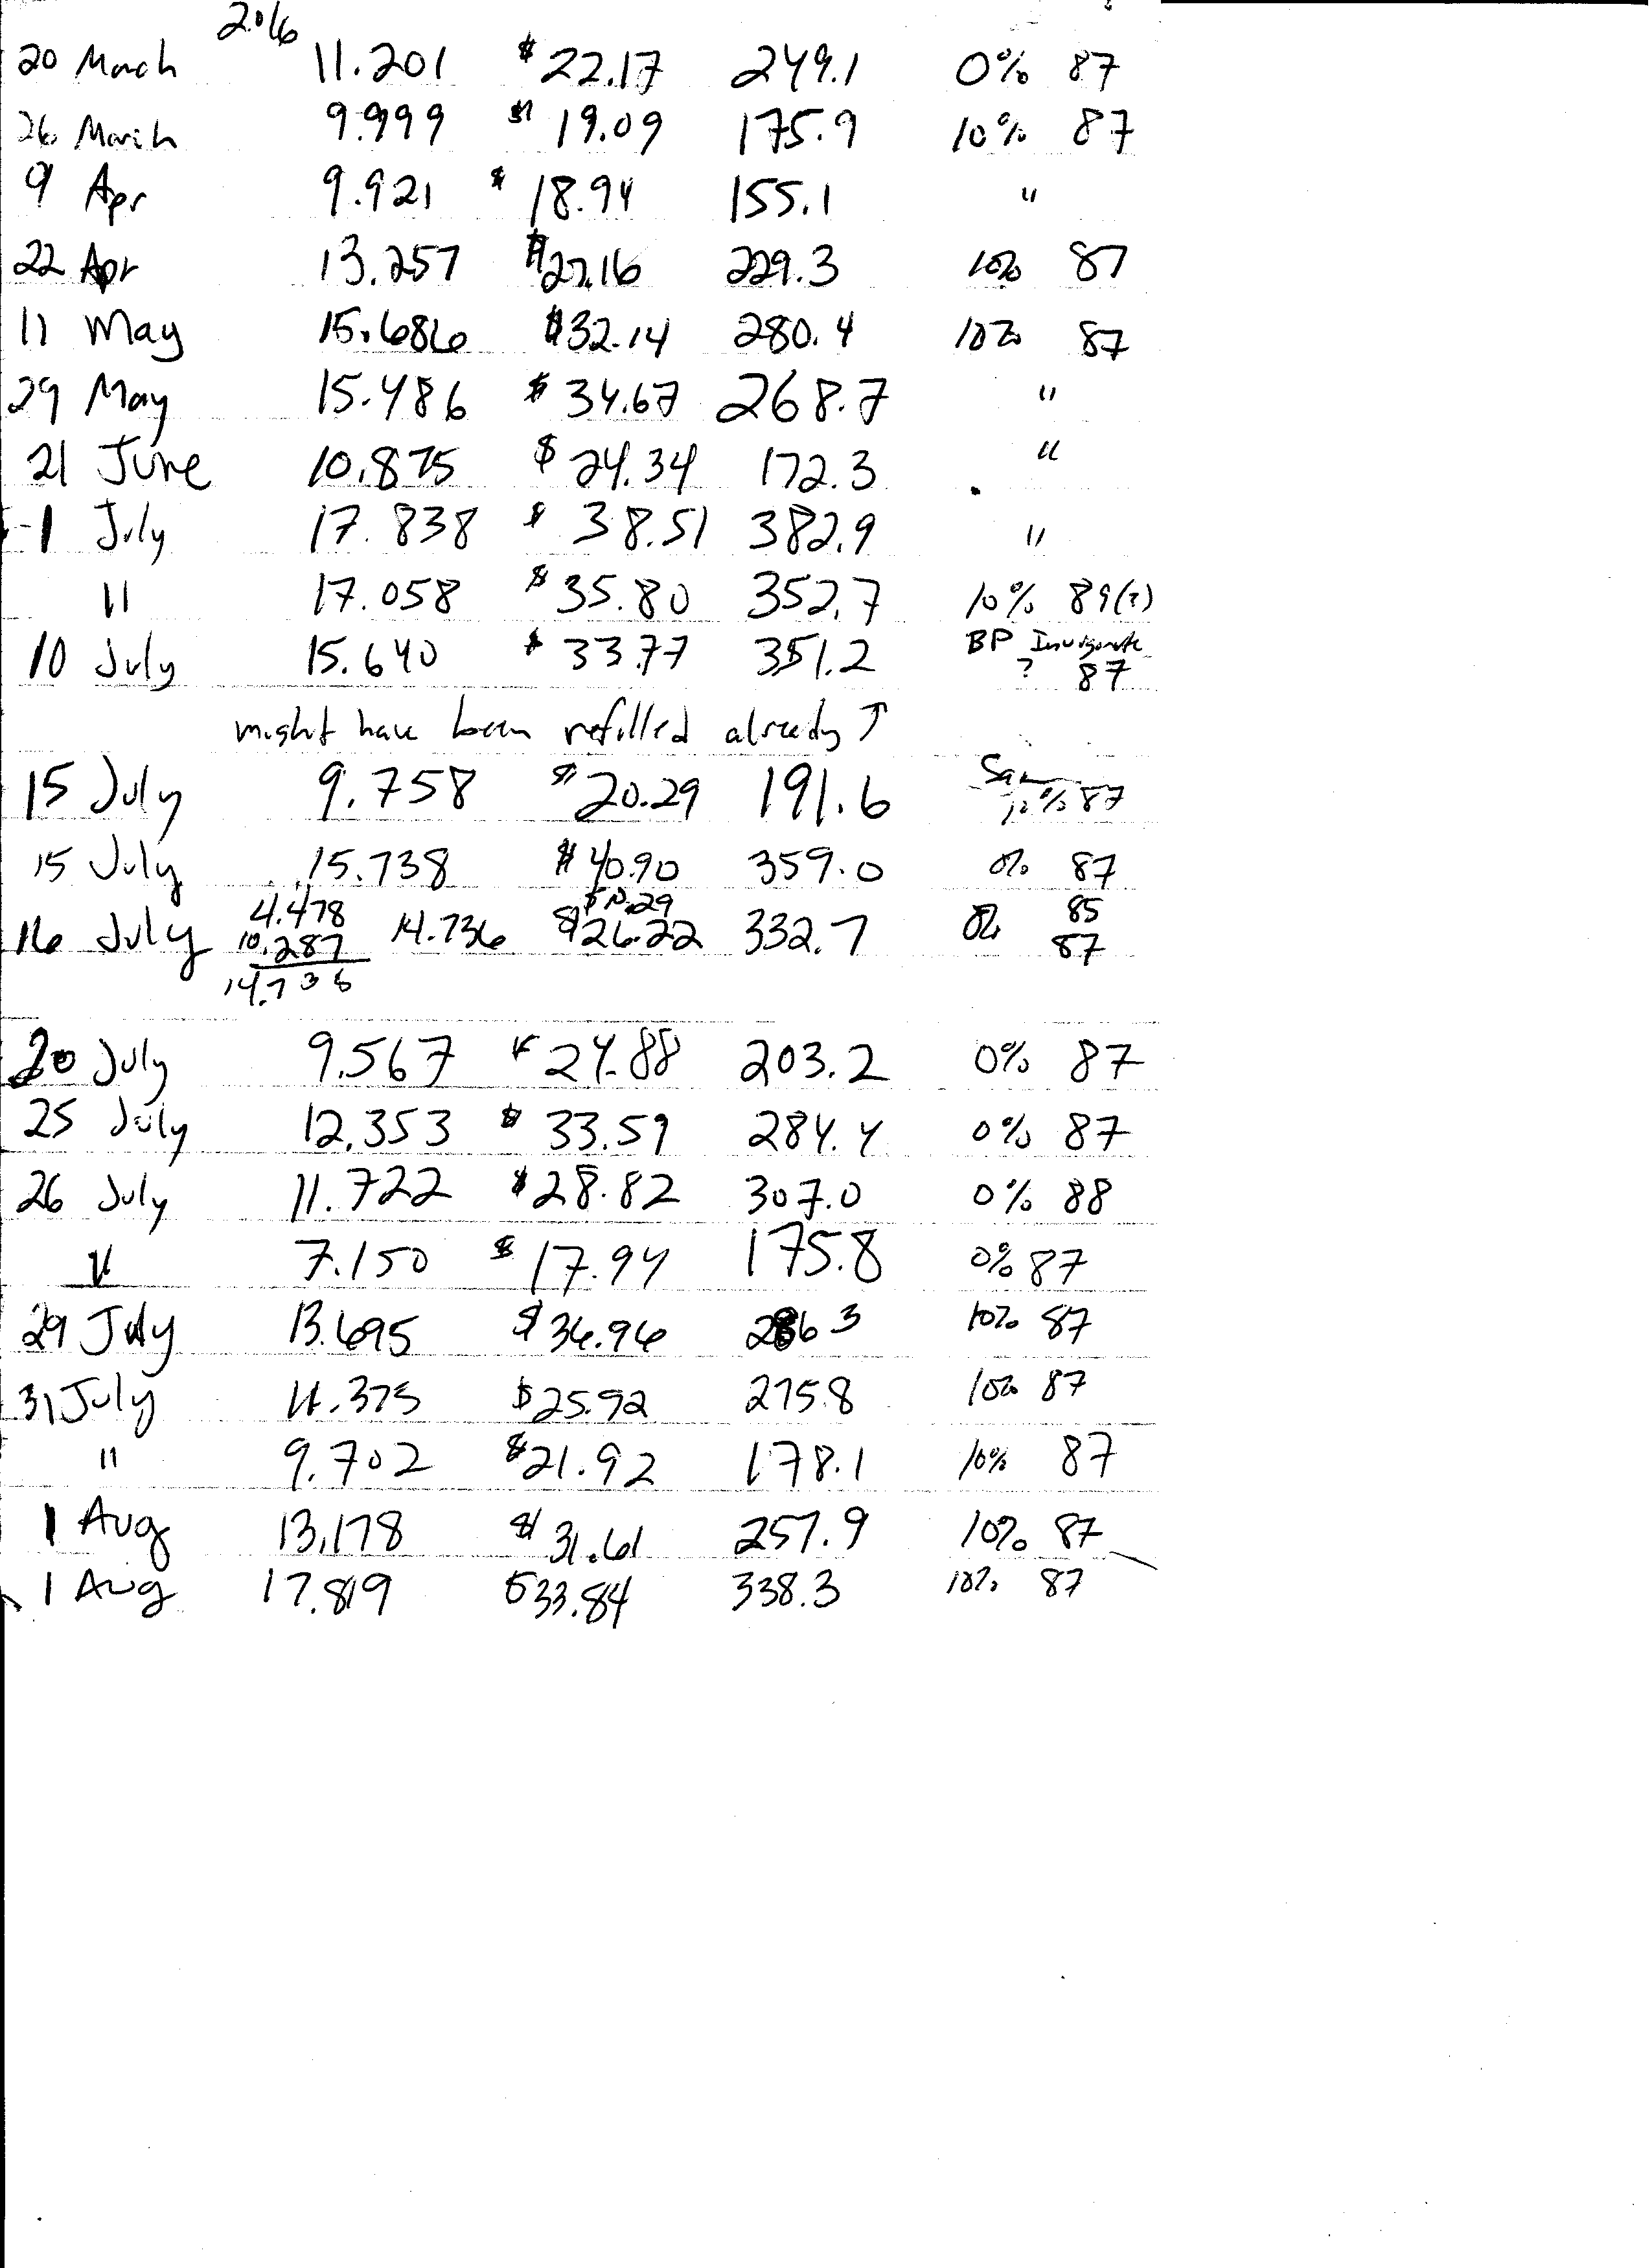 2016
20 March 11.201 $22.17 249.1 0% 87
26 March 9.999 $19.09 175.9 10% 87
9 Apr 9.921 $18.94 155.1 "
22 Apr 13.257 $27.16 229.3 10% 87
11 May 15.686 $32.14 280.4 10% 87
29 May 15.486 $34.67 268.7 "
21 June 10.875 $24.34 172.3 "
1 July 17.838 $38.51 382.9 "
" 17.058 $35.80 352.7 10% 89(?)
10 July 15.640 $33.77 351.2 BP Invigorate
? 87
might have been refilled already ↑
15 July 9.758 $20.29 191.6
10% 87
15 July 15.738 $40.90 359.0 0% 87
4.478 85
16 July 10.287 14.736 $26.22 332.7 0% 87
14.736
20 July 9.567 $24.88 203.2 0% 87
25 July 12.353 $33.59 284.4 0% 87
26 July 11.722 $28.82 307.0 0% 88
" 7.150 $17.94 175.8 0% 87
29 July 13.695 $36.96 10% 87
31 July 11.375 $25.92 275.8 10% 87
" 9.702 $21.92 178.1 10% 87
1 Aug 13.178 $31.61 257.9 10% 87
1 Aug 17.819 $33.84 338.3 10% 87